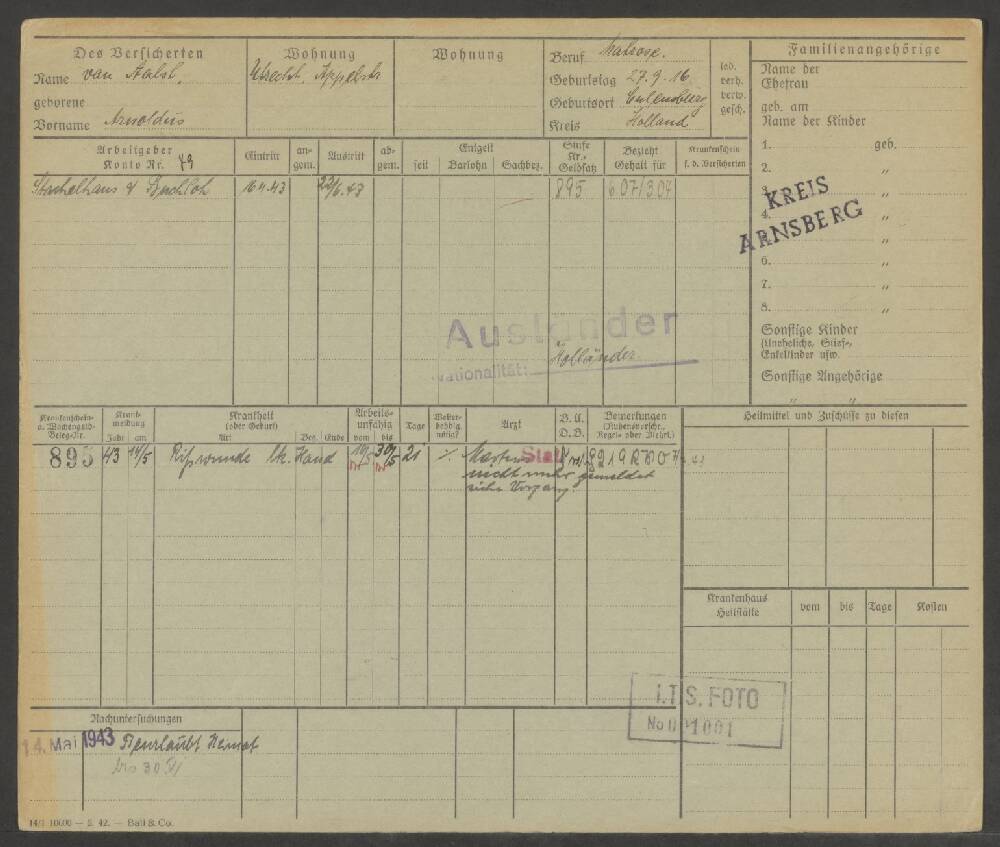 Des Versicherten
Name van Aalst,
geborene
Vorname Arnoldus
Wohnung
Utrecht, Appelstr
Wohnung
Beruf Matrose.
Geburtstag 27.9.16
Geburtsort Culemborg
Kreis Holland
led.
verh.
verw.
gesch.
Familienangehörige
Name der
Ehefrau
geb. am
Name der Kinder
1. geb.
2. "
3. "
4. "
"
6. "
7. "
8. "
Sonstige Kinder
(Uneheliche, Stief-,
Enkelkinder usw.
Sonstige Angehörige
" "
KREIS
ARNSBERG
Arbeitgeber
Konto Nr. 79
Eintritt
an-
gem.
Austritt
ab-
gem.
Entgelt
seit Barlohn Sachbez.
Stufe
Nr.
Geldsatz
Bezieht
Gehalt für
Krankenschein
f. d. Versicherten
Stachelhaus & Buchloh 16.4.43 22/6.43 895 6.07/3.04
Ausländer
Nationalität: Holländer
Krankenschein-
u. Wochengeld-
Beleg-Nr.
Krank-
meldung
Jahr am
Krankheit
(oder Geburt)
Art Beg. Ende
Arbeits-
unfähig
vom bis
Tage
Weiter-
behdlg.
nötig?
Arzt
B. A.
D. B.
Bemerkungen
(Rubensvorschr.,
Regel- oder Mehrl.)
895 43 14/5 Rißwunde lk. Hand 10/5 30/5 21 %
nicht mehr gemeldet
siehe Vorgang.
Heilmittel und Zuschüsse zu diesen
Krankenhaus
Heilstätte
vom bis Tage Kosten
I.T.S. FOTO
No 001001
Nachuntersuchungen
14. Mai 1943 Beurlaubt Heimat
bis 30.5.
14/1 10000 — 5. 42. — Ball & Co.